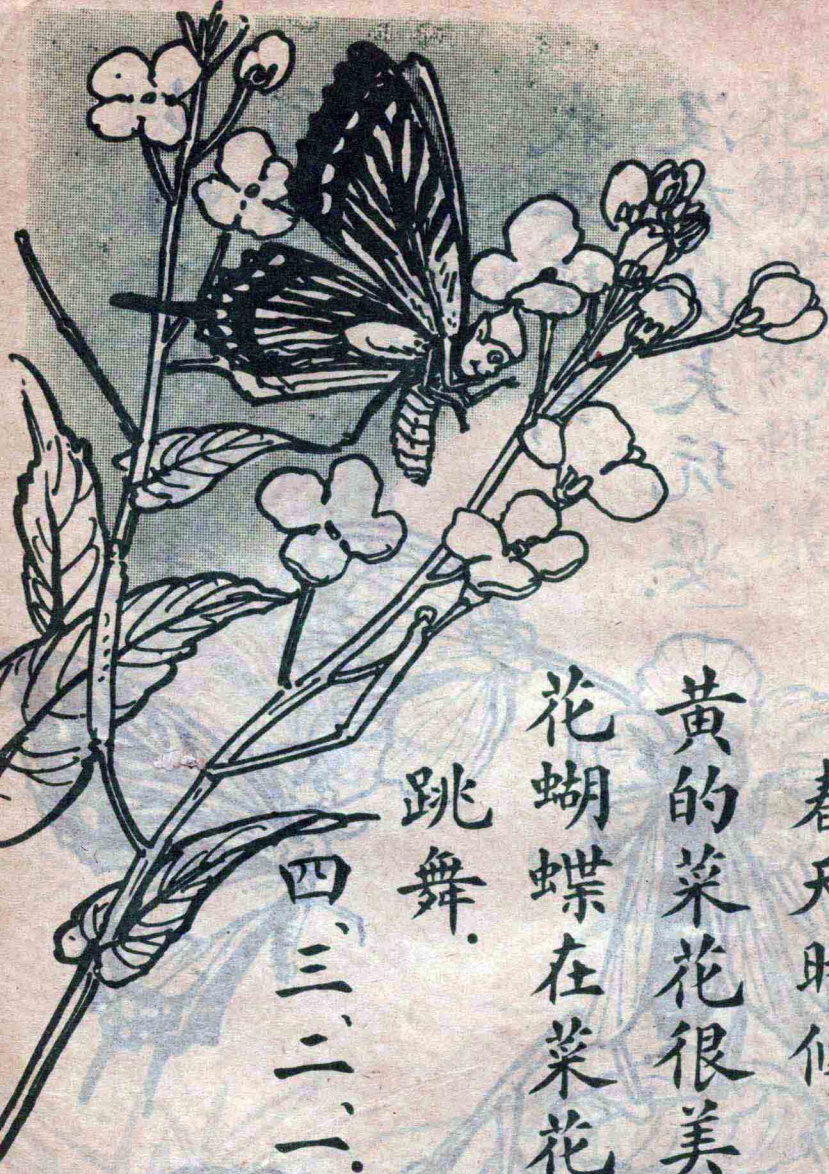 春天時候
黃的菜花很美
花蝴蝶在菜花
跳舞.
四、三、二、一.